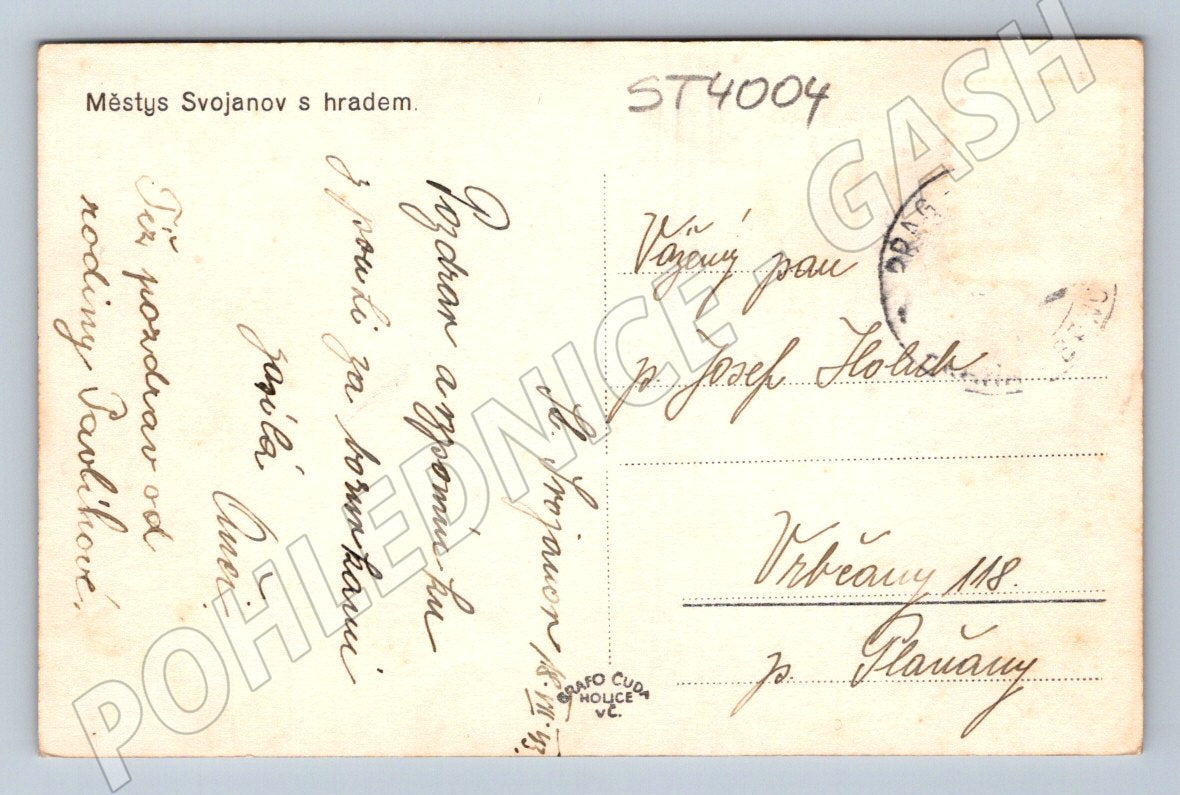 Městys Svojanov s hradem.
ST4004
St. Svojanov 18.VII.43.
Pozdrav a vzpomínku
z pouti za borůvkami
zasílá
Též pozdrav od
rodiny Pavlíkové.
Vážený pan
p. Josef Holub
Vrbčany 118.
p. Plaňany
GRAFO ČUDA
HOLICE
VČ.
PRAG
POHLEDNICE - GASH